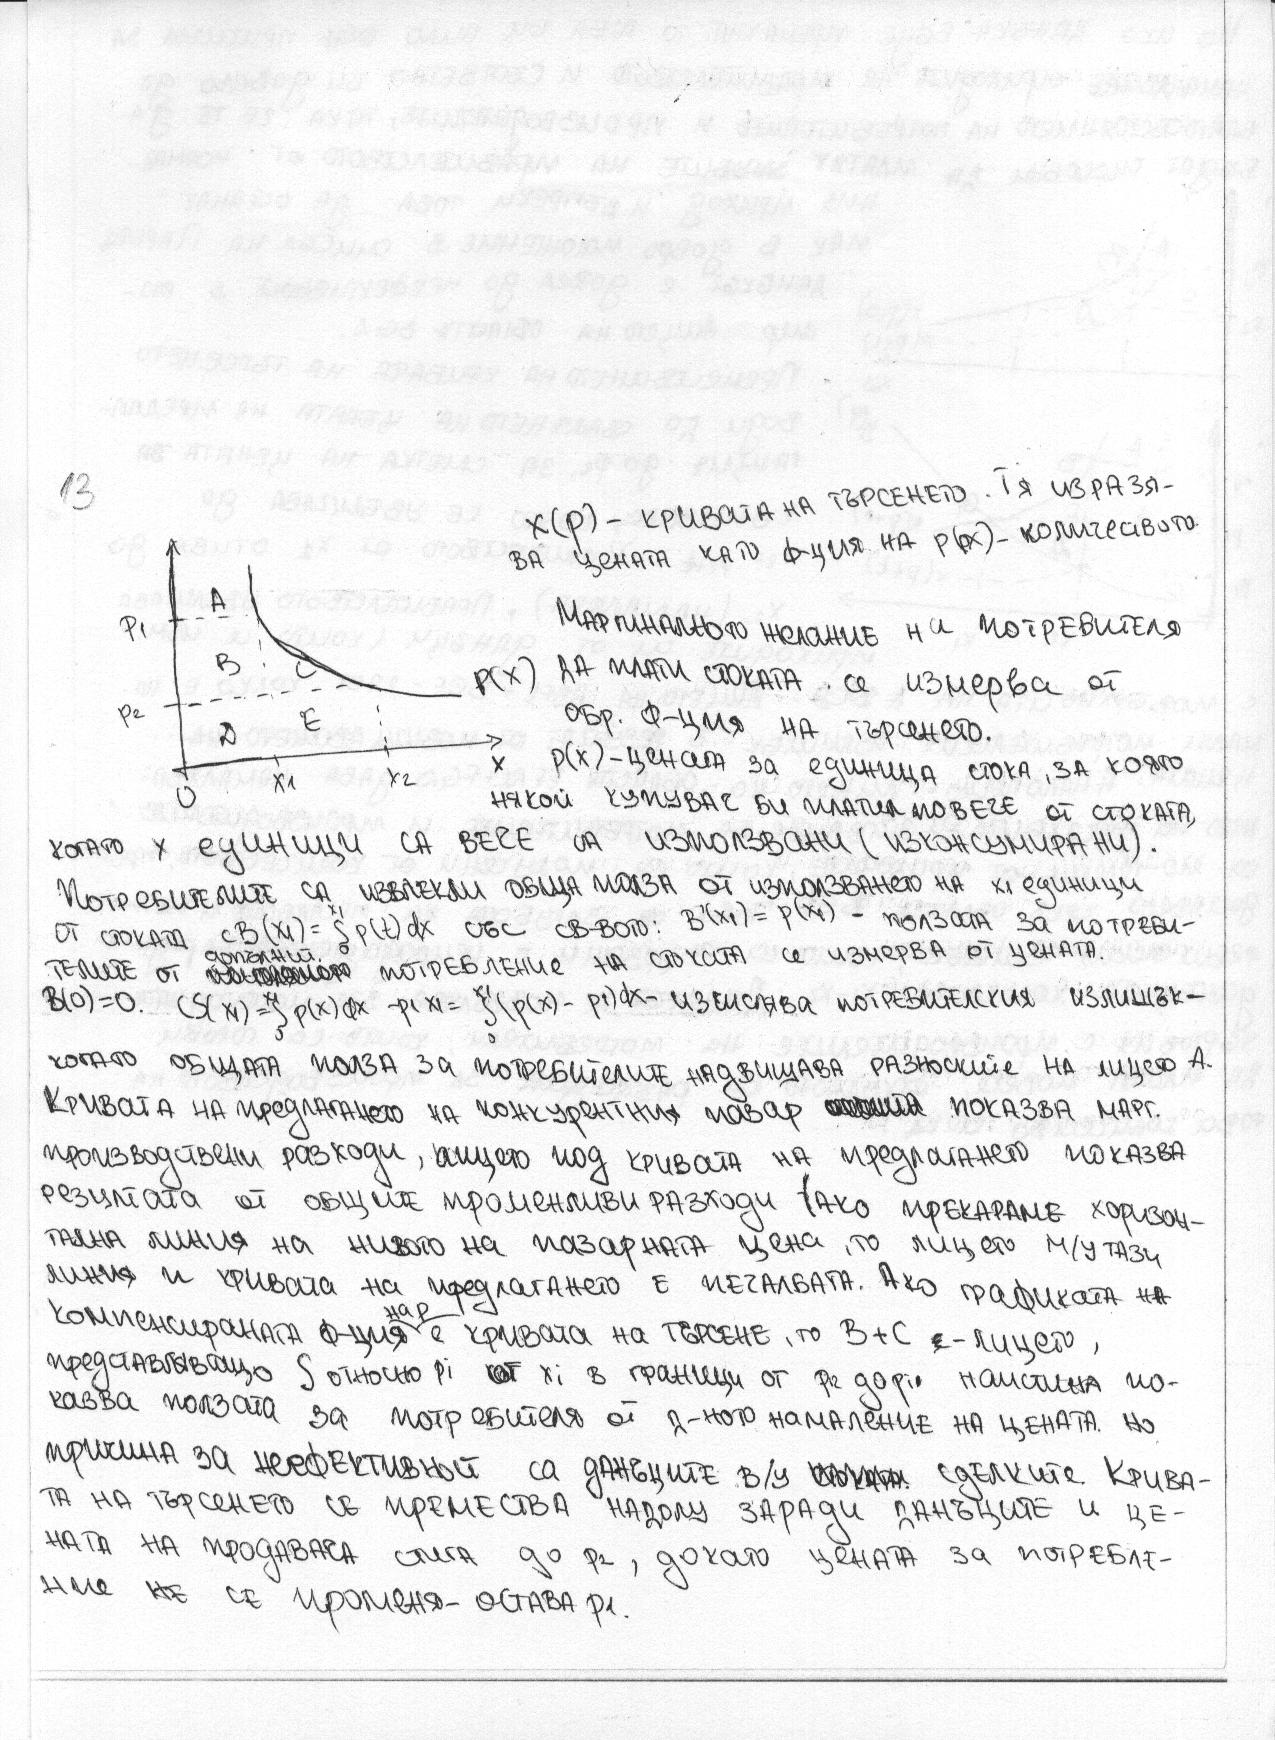 13
x(p) - кривата на търсенето. Тя изразя-
ва цената като ф-ция на p(x) - количеството
Маргиналното желание на потребителя
да плати стоката се измерва от
обр. ф-ция на търсенето.
p(x) - цената за единица стока, за която
някой купувач би платил повече от стоката,
p1
p2
A
B
C
D
E
p(x)
0
x1
x2
x
когато x единици са вече са използвани (изконсумирани).
Потребителите са извлекли обща полза от използването на x1 единици
от стоката с B(x1) = ∫₀^x1 p(t)dx със св-вото: B'(x1) = p(x1) - ползата за потреби-
телите от допълнит. потребление на стоката се измерва от цената.
B(0)=0. CS(x1) = ∫₀^x1 p(x)dx - p1x1 = ∫₀^x1 (p(x) - p1)dx - изчислява потребителския излишък -
когато общата полза за потребителите надвишава разноските на лицето A.
Кривата на предлагането на конкурентния пазар показва марг.
производствени разходи, лицето под кривата на предлагането показва
резултата от общите променливи разходи (Ако прекараме хоризон-
тална линия на нивото на пазарната цена, то лицето м/у тази
линия и кривата на предлагането е печалбата. Ако графиката на
компенсираната ф-ция е нар. кривата на търсене, то B+C е - лицето,
представляващо ∫ относно pi от xi в граници от p2 до p1. наистина по-
казва ползата за потребителя от д-ното намаление на цената. но
причина за неефективност са данъците в/у сделките. Крива-
та на търсенето се премества надолу заради данъците и це-
ната на продавача стига до p2, докато цената за потребле-
ние не се променя - остава p1.